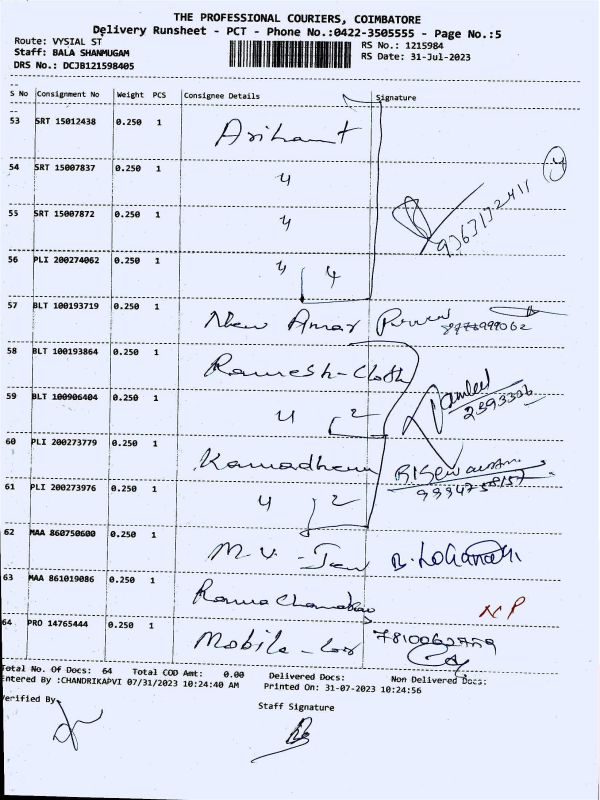 THE PROFESSIONAL COURIERS, COIMBATORE
Delivery Runsheet - PCT - Phone No.:0422-3505555 - Page No.:5
Route: VYSIAL ST
Staff: BALA SHANMUGAM
DRS No.: DCJB121598405
RS No.: 1215984
RS Date: 31-Jul-2023
S No Consignment No Weight PCS Consignee Details Signature
53 SRT 15012438 0.250 1 Arihant
54 SRT 15007837 0.250 1 4
55 SRT 15007872 0.250 1 4 9363132411
56 PLI 200274062 0.250 1 4 4
57 BLT 100193719 0.250 1 New Amar
58 BLT 100193864 0.250 1 Ramesh-Cloth
59 BLT 100906404 0.250 1 4 2 2593306
60 PLI 200273779 0.250 1 Kamadhenu
61 PLI 200273976 0.250 1 4 2
62 MAA 860750600 0.250 1 M.V.
63 MAA 861019086 0.250 1 NP
64 PRO 14765444 0.250 1 Mobile
Total No. Of Docs: 64 Total COD Amt: 0.00 Delivered Docs: Non Delivered Docs:
Entered By :CHANDRIKAPVI 07/31/2023 10:24:40 AM Printed On: 31-07-2023 10:24:56
Verified By
Staff Signature